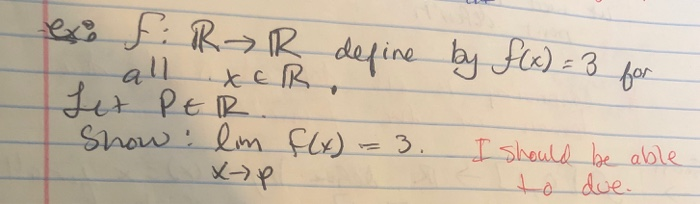 ex: f: ℝ → ℝ define by f(x) = 3 for
all x ∈ ℝ.
Let P ∈ ℝ.
Show: lim f(x) = 3.
x→p
I should be able
to due.